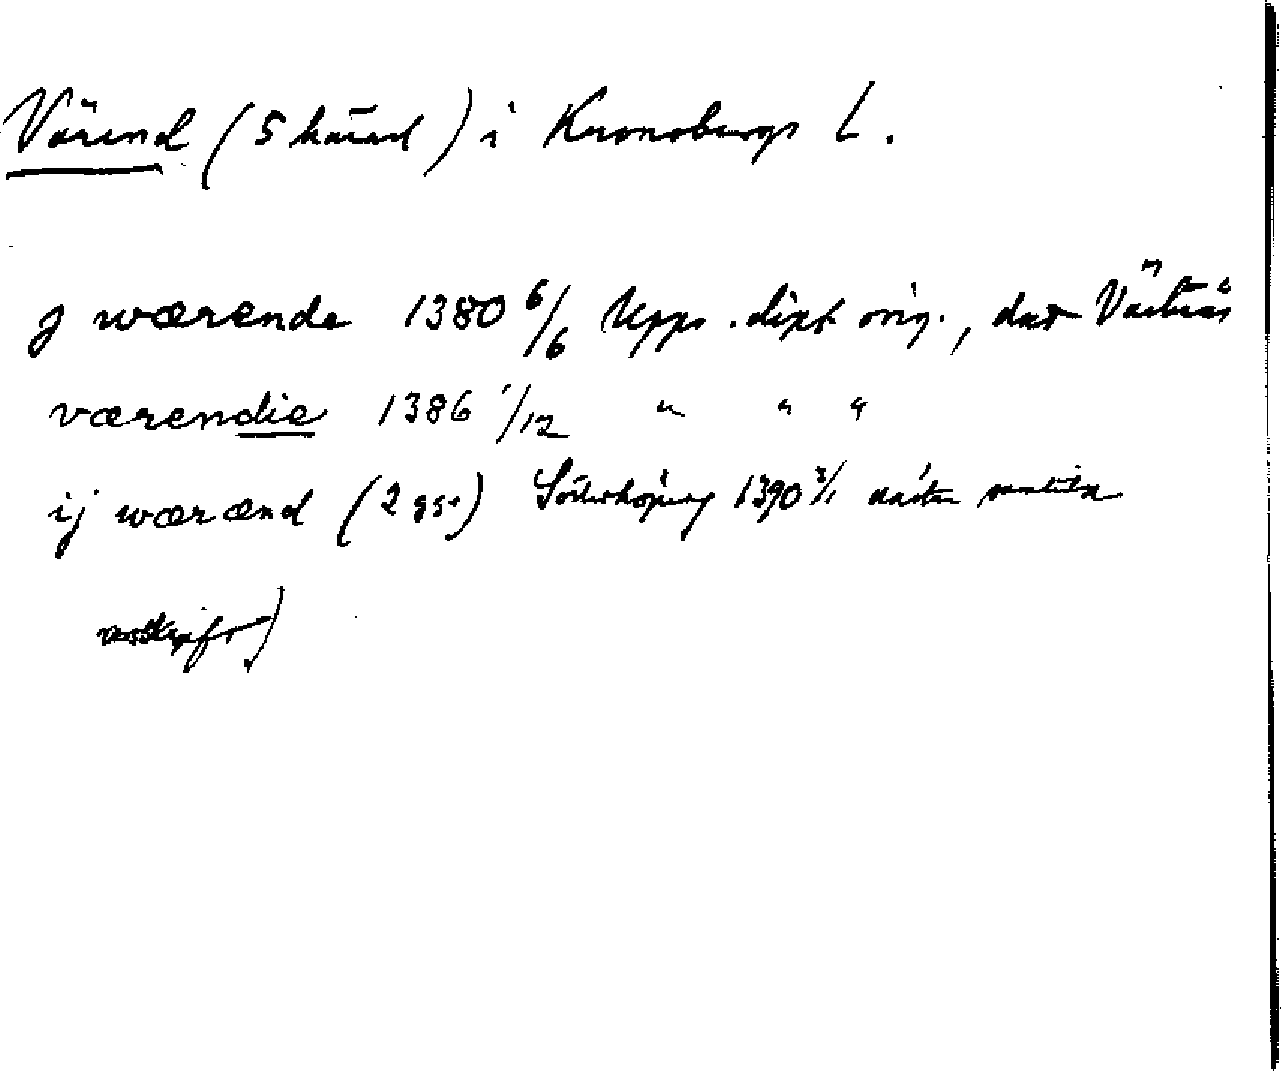 Värend (5 härad) i Kronobergs L.
J wærende 1380 6/6 Upps. dipl orig., dat Västerås
værendie 1386 1/12 " " "
ij wærænd (2 ggr) Söderköping 1390 3/1 samtida
avskrift)